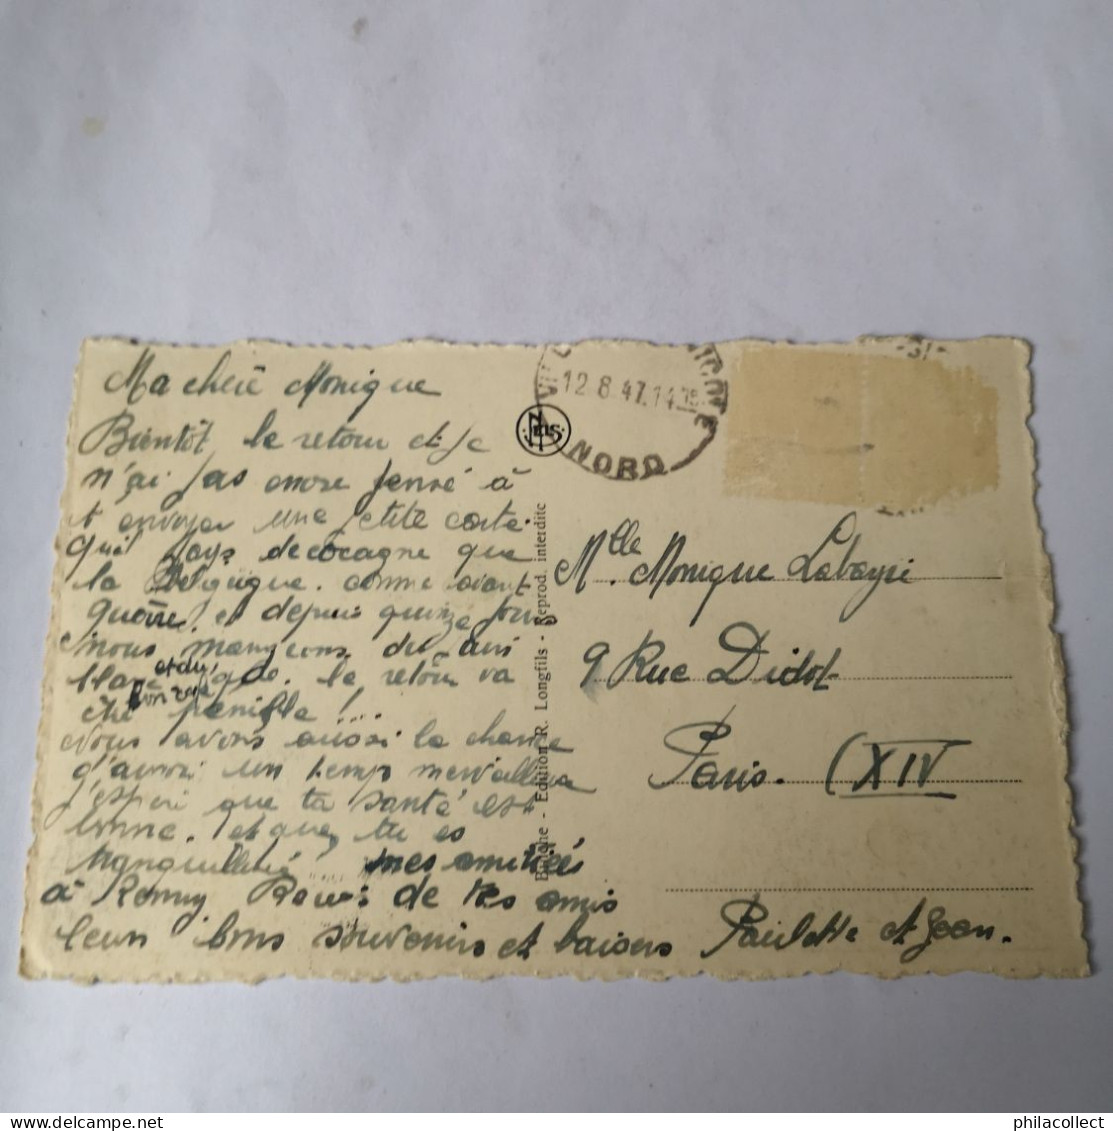 Ma chère Monique
Bientôt le retour et je
n'ai pas encore pensé à
t envoyer une petite carte.
quel Pays de cocagne que
la Belgique. comme avant
guerre, et depuis quinze jours
nous mangeons du
le retour va
être pénible!...
Nous avons aussi la chance
d'avoir un temps merveilleux
j'espère que ta santé est
bonne. et que tu es
tranquille mes amitiés
à Rémy de tes amis
leurs bons souvenirs et baisers Paulette et Jean.
12.8.47.14
NORD
NELS
Binche - Edition R. Longfils - Reprod. interdite
Mlle. Monique Labayri
9 Rue Didot
Paris. (XIV
philacollect